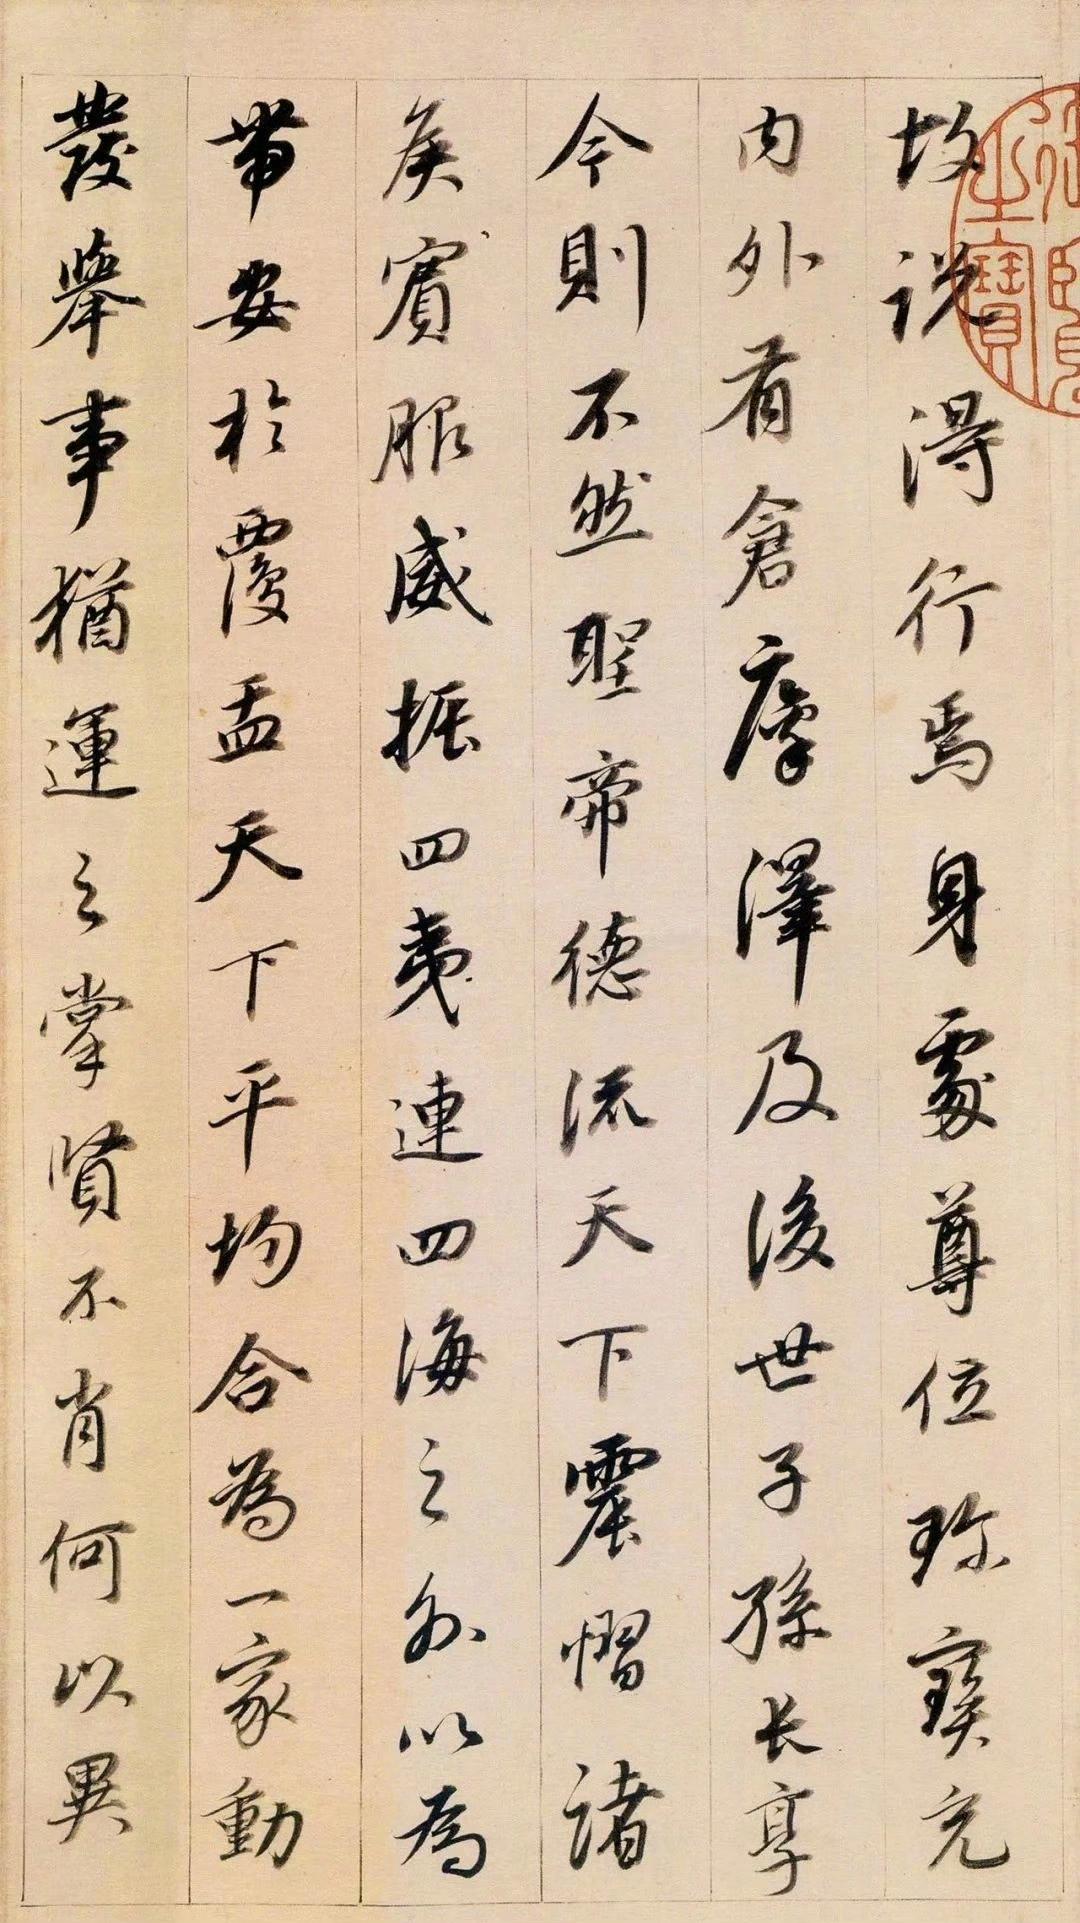 故說得行焉身處尊位珍寶充
内外有倉廩澤及後世子孫長享
今則不然聖帝德流天下震慴諸
侯賓服威振四夷連四海之外以為
帶安於覆盂天下平均合為一家動
發舉事猶運之掌賢不肖何以異
御覽之寶